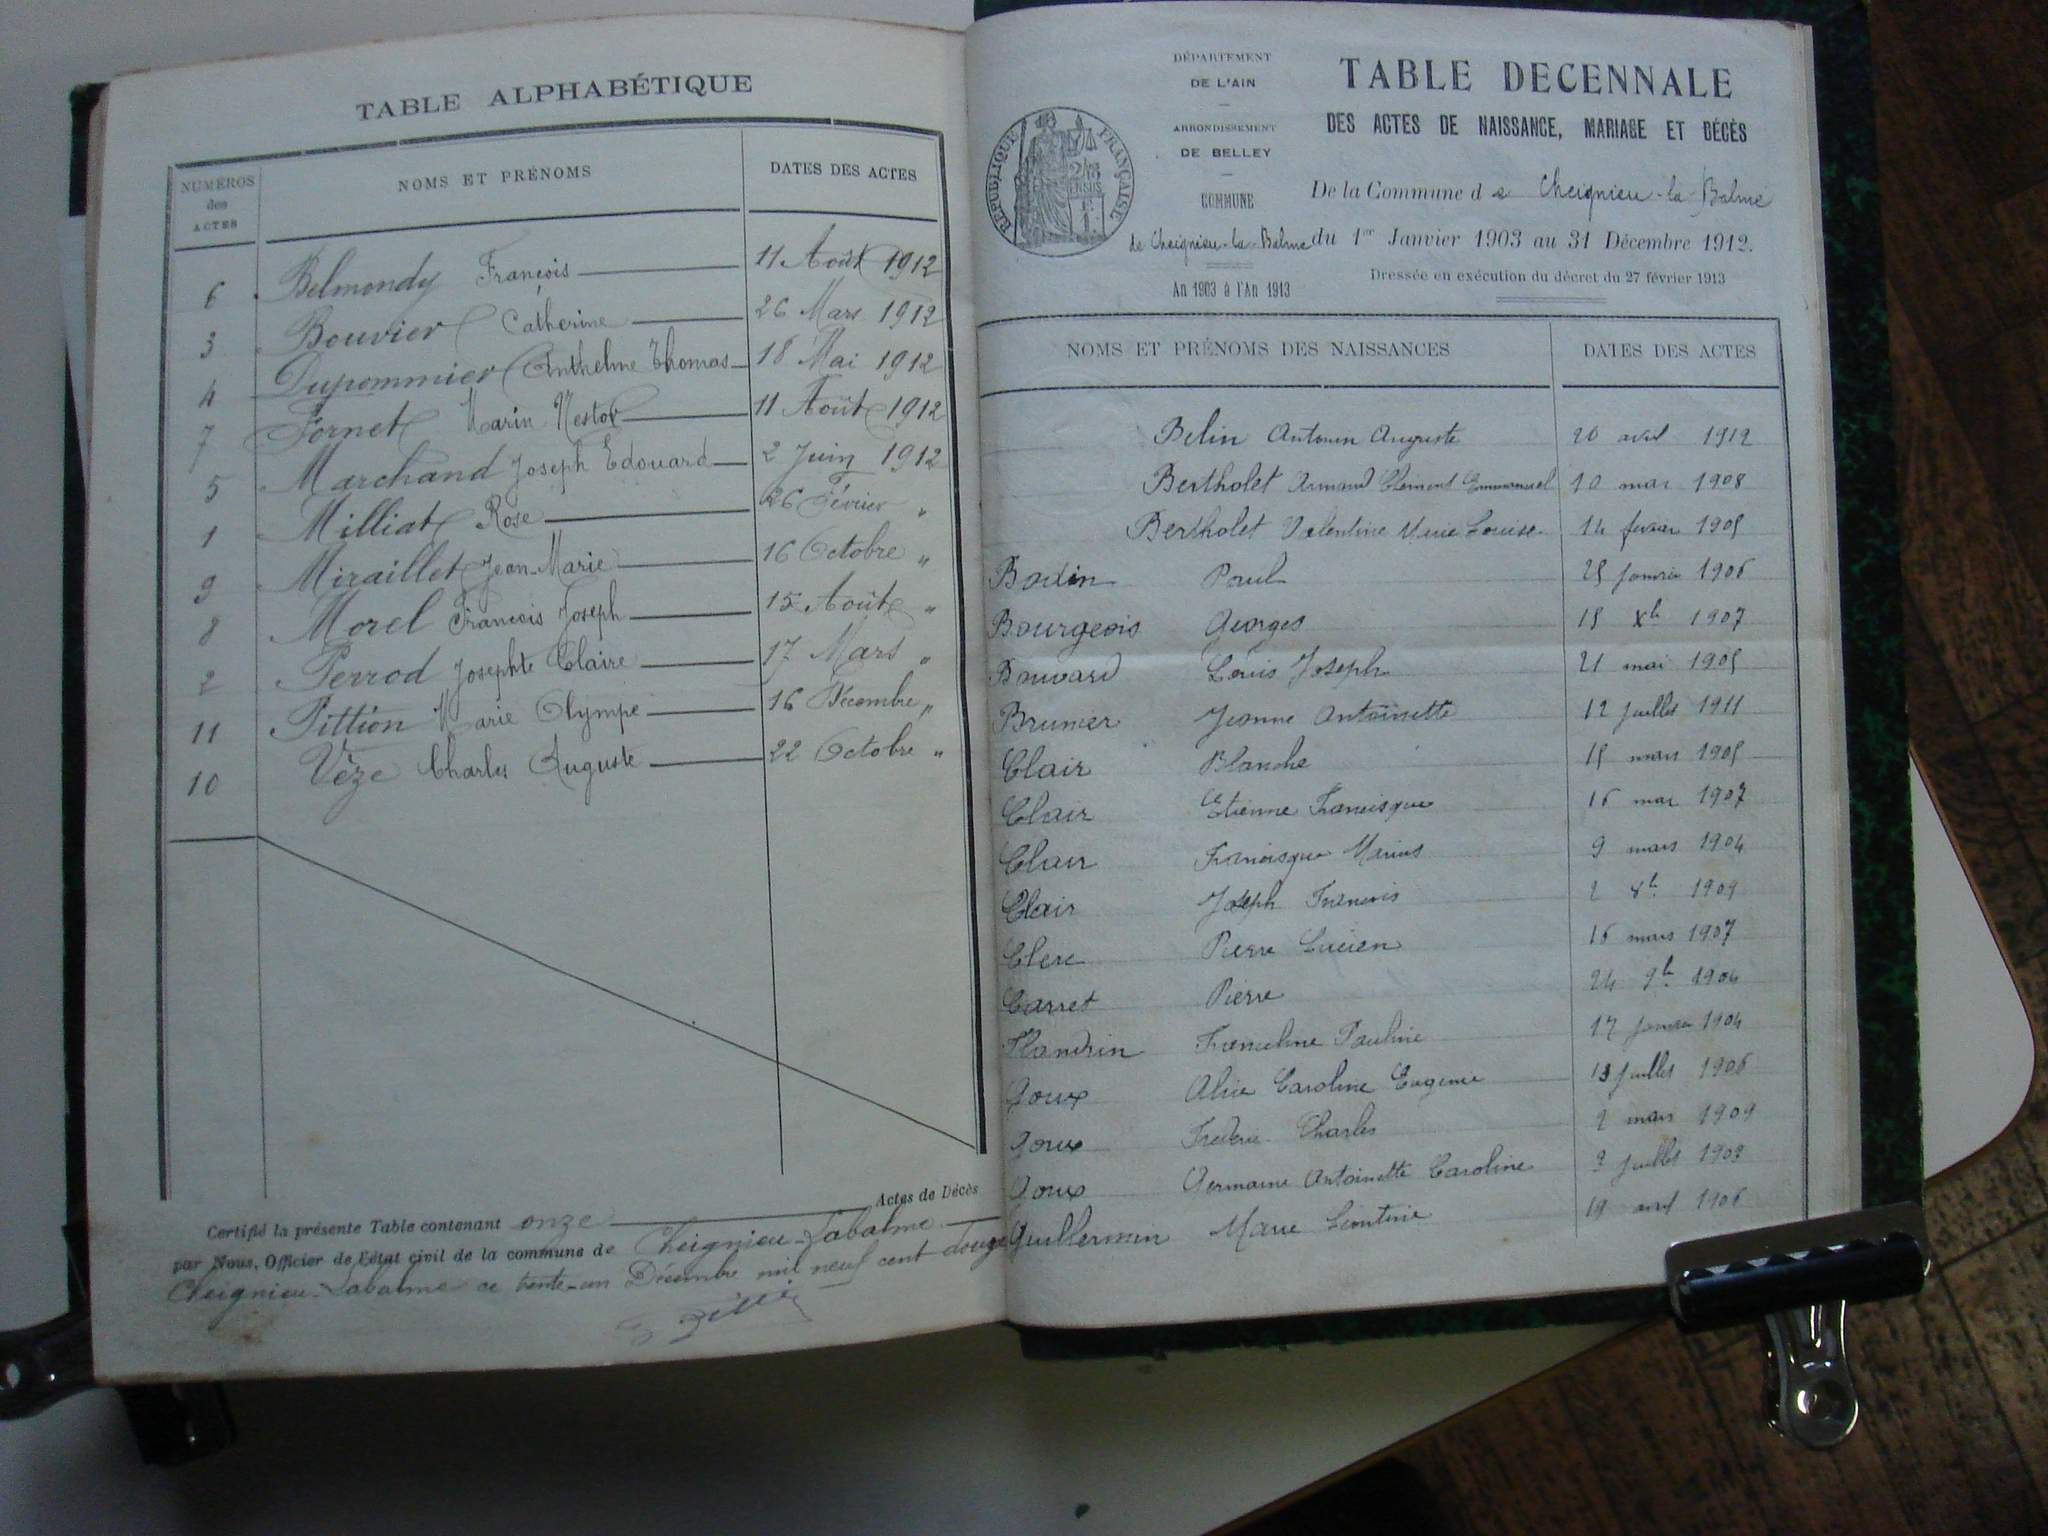 TABLE ALPHABÉTIQUE
NUMÉROS des ACTES NOMS ET PRÉNOMS DATES DES ACTES
6 Belmondy François 11 Août 1912
3 Bouvier Catherine 26 Mars 1912
4 Dupommier Anthelme Thomas 18 Mai 1912
7 Fornet Marin Nestor 11 Août 1912
5 Marchand Joseph Edouard 2 Juin 1912
1 Milliat Rose 26 Février "
9 Miraillet Jean-Marie 16 Octobre "
8 Morel François Joseph 15 Août "
2 Perrod Josephte Claire 17 Mars "
11 Pittion Marie Olympe 16 Décembre "
10 Vèze Charles Auguste 22 Octobre "
Actes de Décès
Certifié la présente Table contenant onze
par Nous, Officier de l'état civil de la commune de Cheignieu-Labalme
Cheignieu-Labalme ce trente-un Décembre mil neuf cent douze
DÉPARTEMENT
DE L'AIN
ARRONDISSEMENT
DE BELLEY
COMMUNE
de Cheignieu-la-Balme
An 1903 à l'An 1913
RÉPUBLIQUE FRANÇAISE
TABLE DECENNALE
DES ACTES DE NAISSANCE, MARIAGE ET DÉCÈS
De la Commune de Cheignieu-la-Balme
du 1er Janvier 1903 au 31 Décembre 1912.
Dressée en exécution du décret du 27 février 1913
NOMS ET PRÉNOMS DES NAISSANCES DATES DES ACTES
Belin Antonin Auguste 20 avril 1912
Bertholet Armand Clément Emmanuel 10 mai 1908
Bertholet Valentine Marie Louise 14 fevrier 1905
Bodin Paul 25 Janvier 1906
Bourgeois Georges 15 Xb 1907
Bouvard Louis Joseph 21 mai 1905
Brunier Jeanne Antoinette 12 Juillet 1911
Clair Blanche 15 mars 1905
Clair Etienne Francisque 16 mai 1907
Clair Francisque Marius 9 mars 1904
Clair Joseph Francois 2 8b 1909
Clerc Pierre Lucien 16 mars 1907
Carret Pierre 24 9b 1904
Flandrin Franceline Pauline 17 Janvier 1904
Goux Alice Caroline Eugenie 13 Juillet 1906
Goux Frederic Charles 2 mars 1909
Goux Germaine Antoinette Caroline 2 Juillet 1903
Guillermin Marie Leontine 19 avril 1906